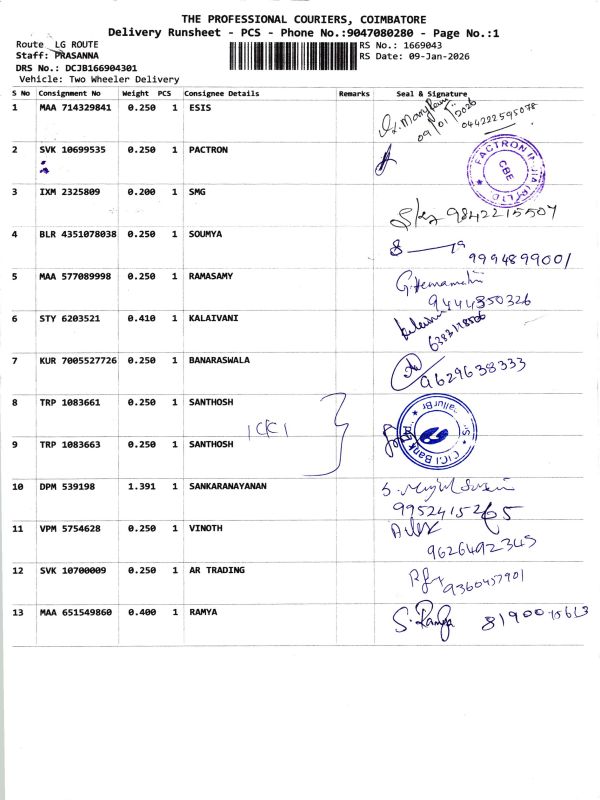 THE PROFESSIONAL COURIERS, COIMBATORE
Delivery Runsheet - PCS - Phone No.:9047080280 - Page No.:1
Route LG ROUTE
Staff: PRASANNA
DRS No.: DCJB166904301
Vehicle: Two Wheeler Delivery
RS No.: 1669043
RS Date: 09-Jan-2026
S No Consignment No Weight PCS Consignee Details Remarks Seal & Signature
1 MAA 714329841 0.250 1 ESIS
09/01/2026 044222595078
2 SVK 10699535 0.250 1 PACTRON
CBE
3 IXM 2325809 0.200 1 SMG
9842215507
4 BLR 4351078038 0.250 1 SOUMYA
9994899001
5 MAA 577089998 0.250 1 RAMASAMY
9444350326
6 STY 6203521 0.410 1 KALAIVANI
7 KUR 7005527726 0.250 1 BANARASWALA
9629638333
8 TRP 1083661 0.250 1 SANTHOSH
ICICI
ICICI Bank
9 TRP 1083663 0.250 1 SANTHOSH
10 DPM 539198 1.391 1 SANKARANAYANAN
9952415265
11 VPM 5754628 0.250 1 VINOTH
9626492345
12 SVK 10700009 0.250 1 AR TRADING
9360457901
13 MAA 651549860 0.400 1 RAMYA
S. Ramya